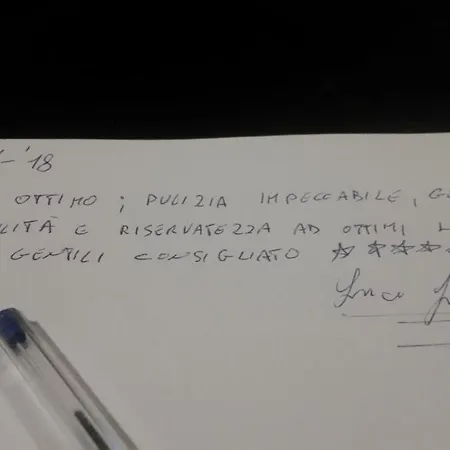 -'18
OTTIMO ; PULIZIA IMPECCABILE,
LITÀ E RISERVATEZZA AD OTTIMI
GENTILI CONSIGLIATO ☆☆☆☆